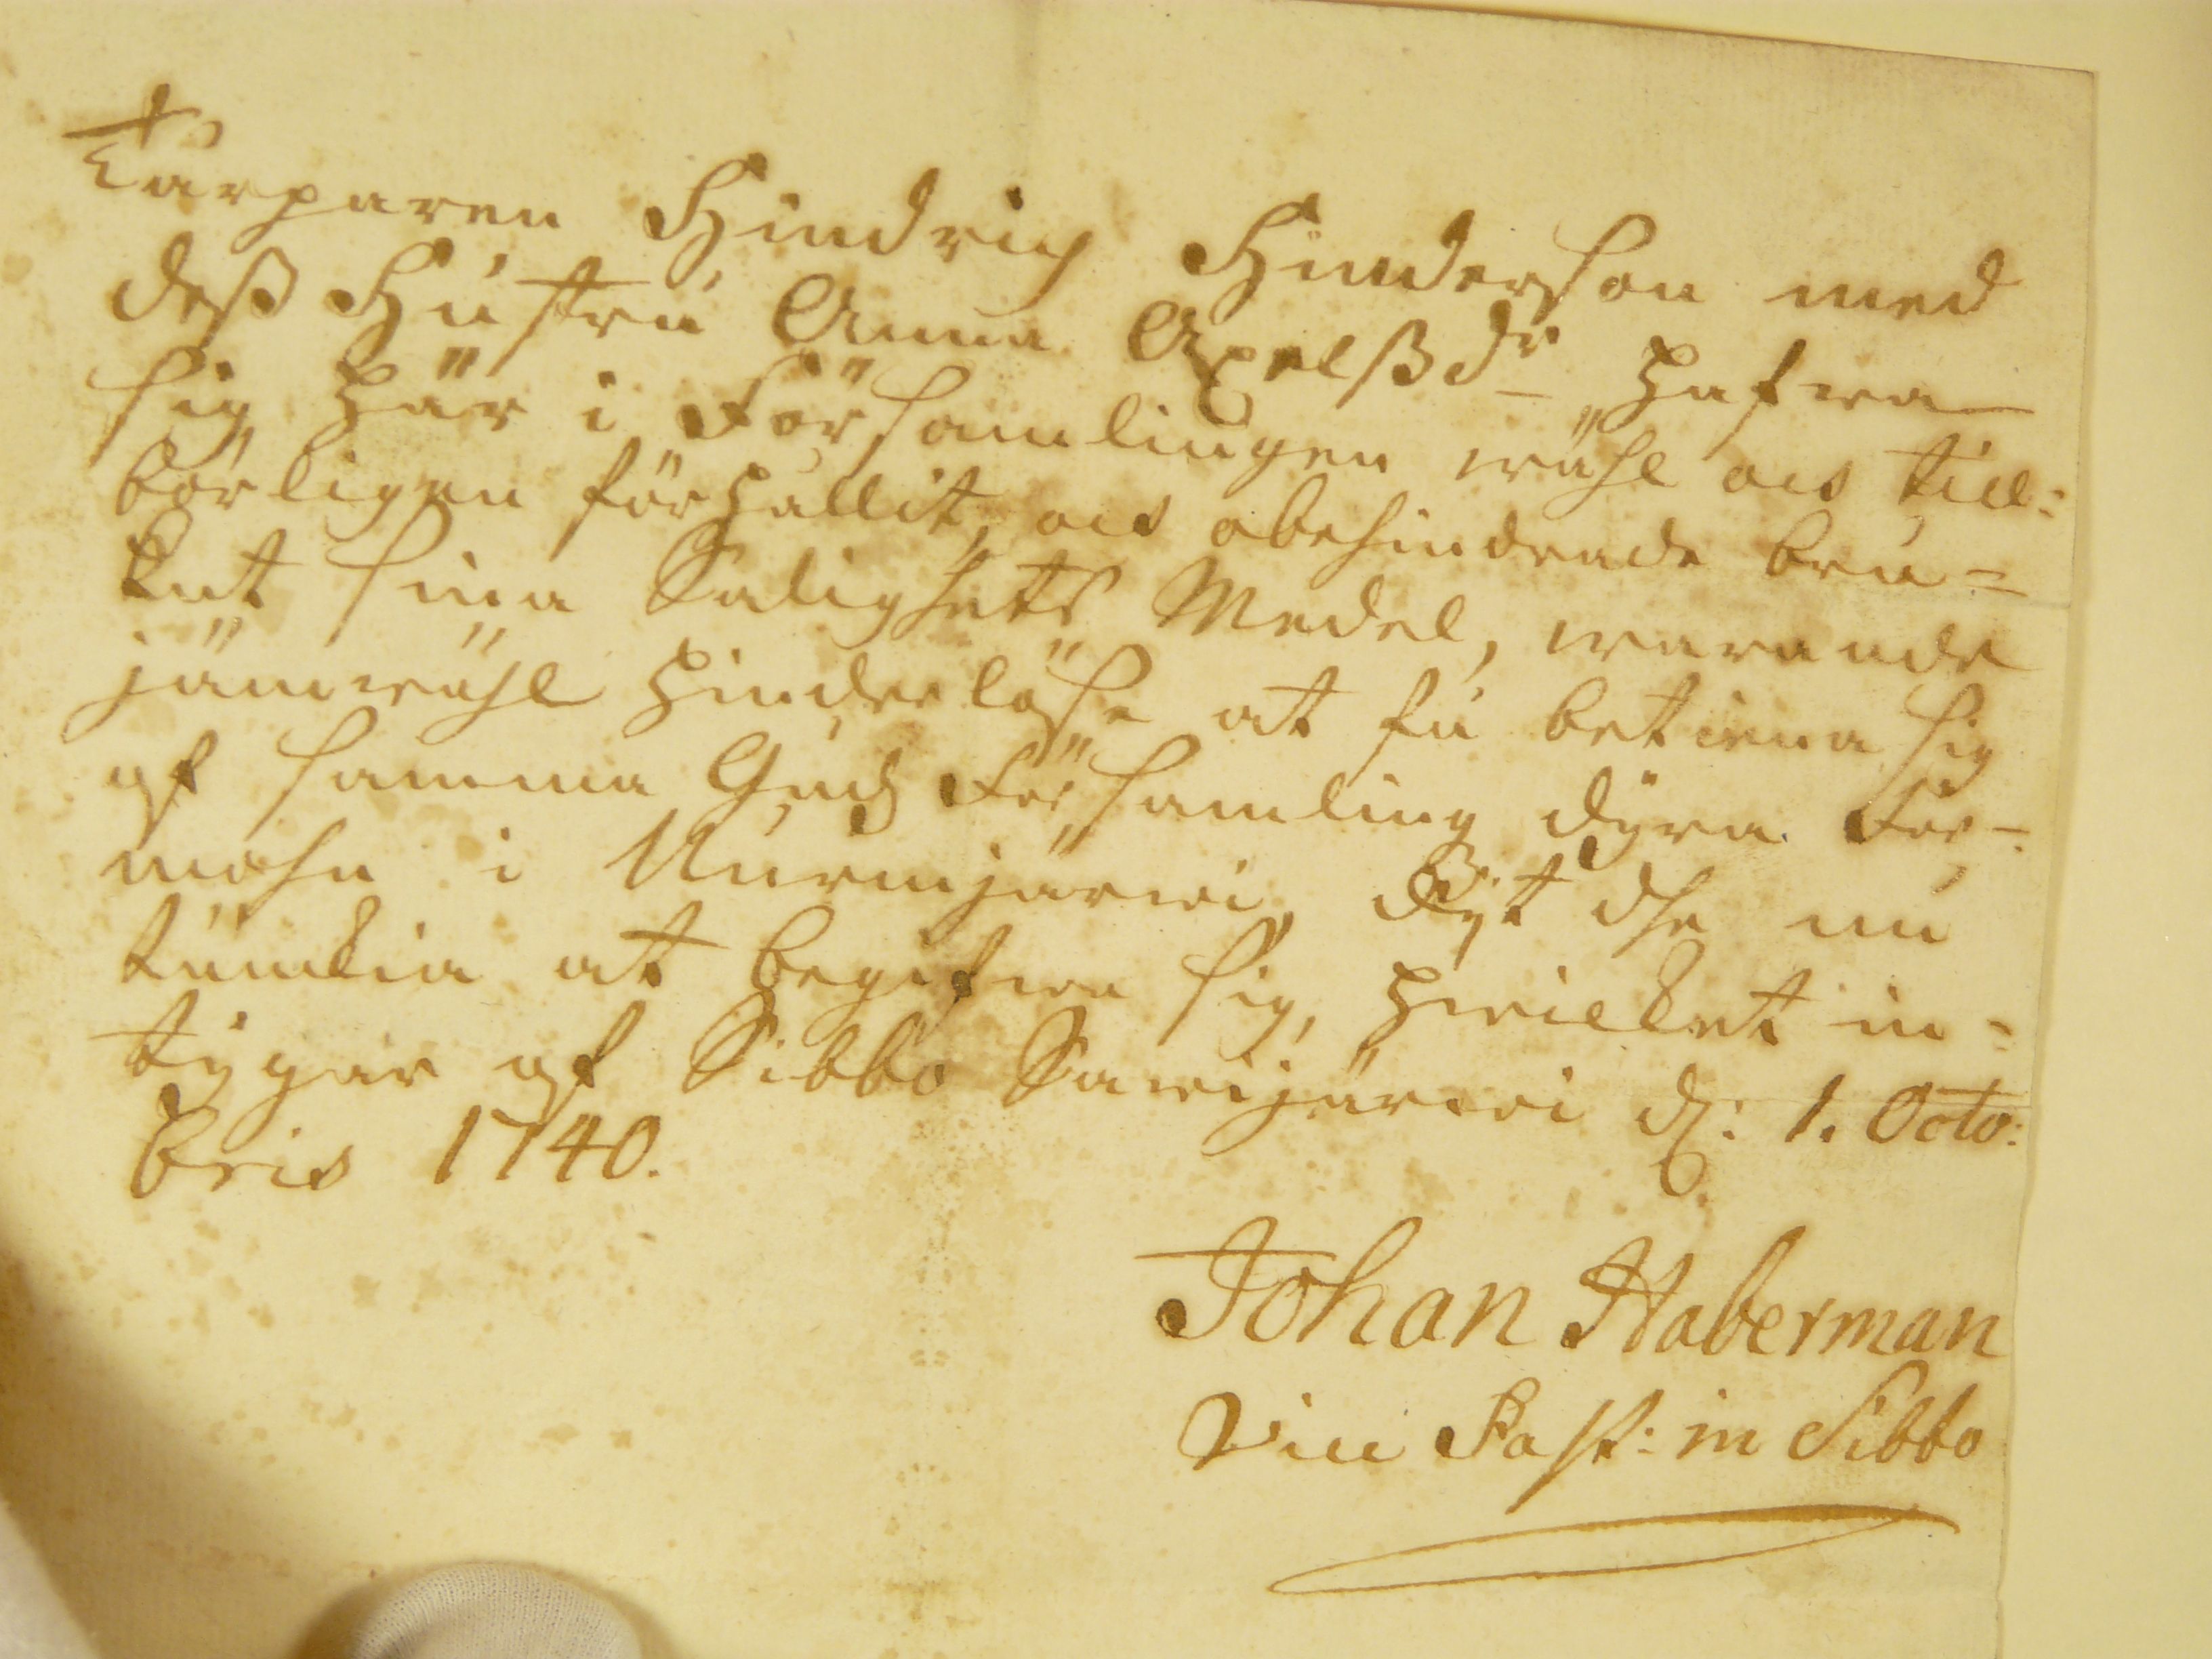 Tårparen Hindrich Hinderson med
deß Hústrú Anna Axelß dr hafwa
sig här i Församlingen wähl ocs till:
börligen förhållit, ocs obehindrade brú=
kat sina Salighets Medel, warande
jämwähl hinderlöse at få betiena sig
af samma Gúdz Församling dÿra För=
mohn i Núrmijärwi, dÿt dhe nú
tänckia at begifwa sig, hwilcket in=
tÿgar af Sibbo Sawijärwi d: 1. Octo:
bris 1740.
Johan Haberman
Vice Past: in Sibbo